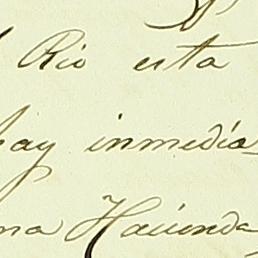 Rio esta
hay inmedia
na Hacienda